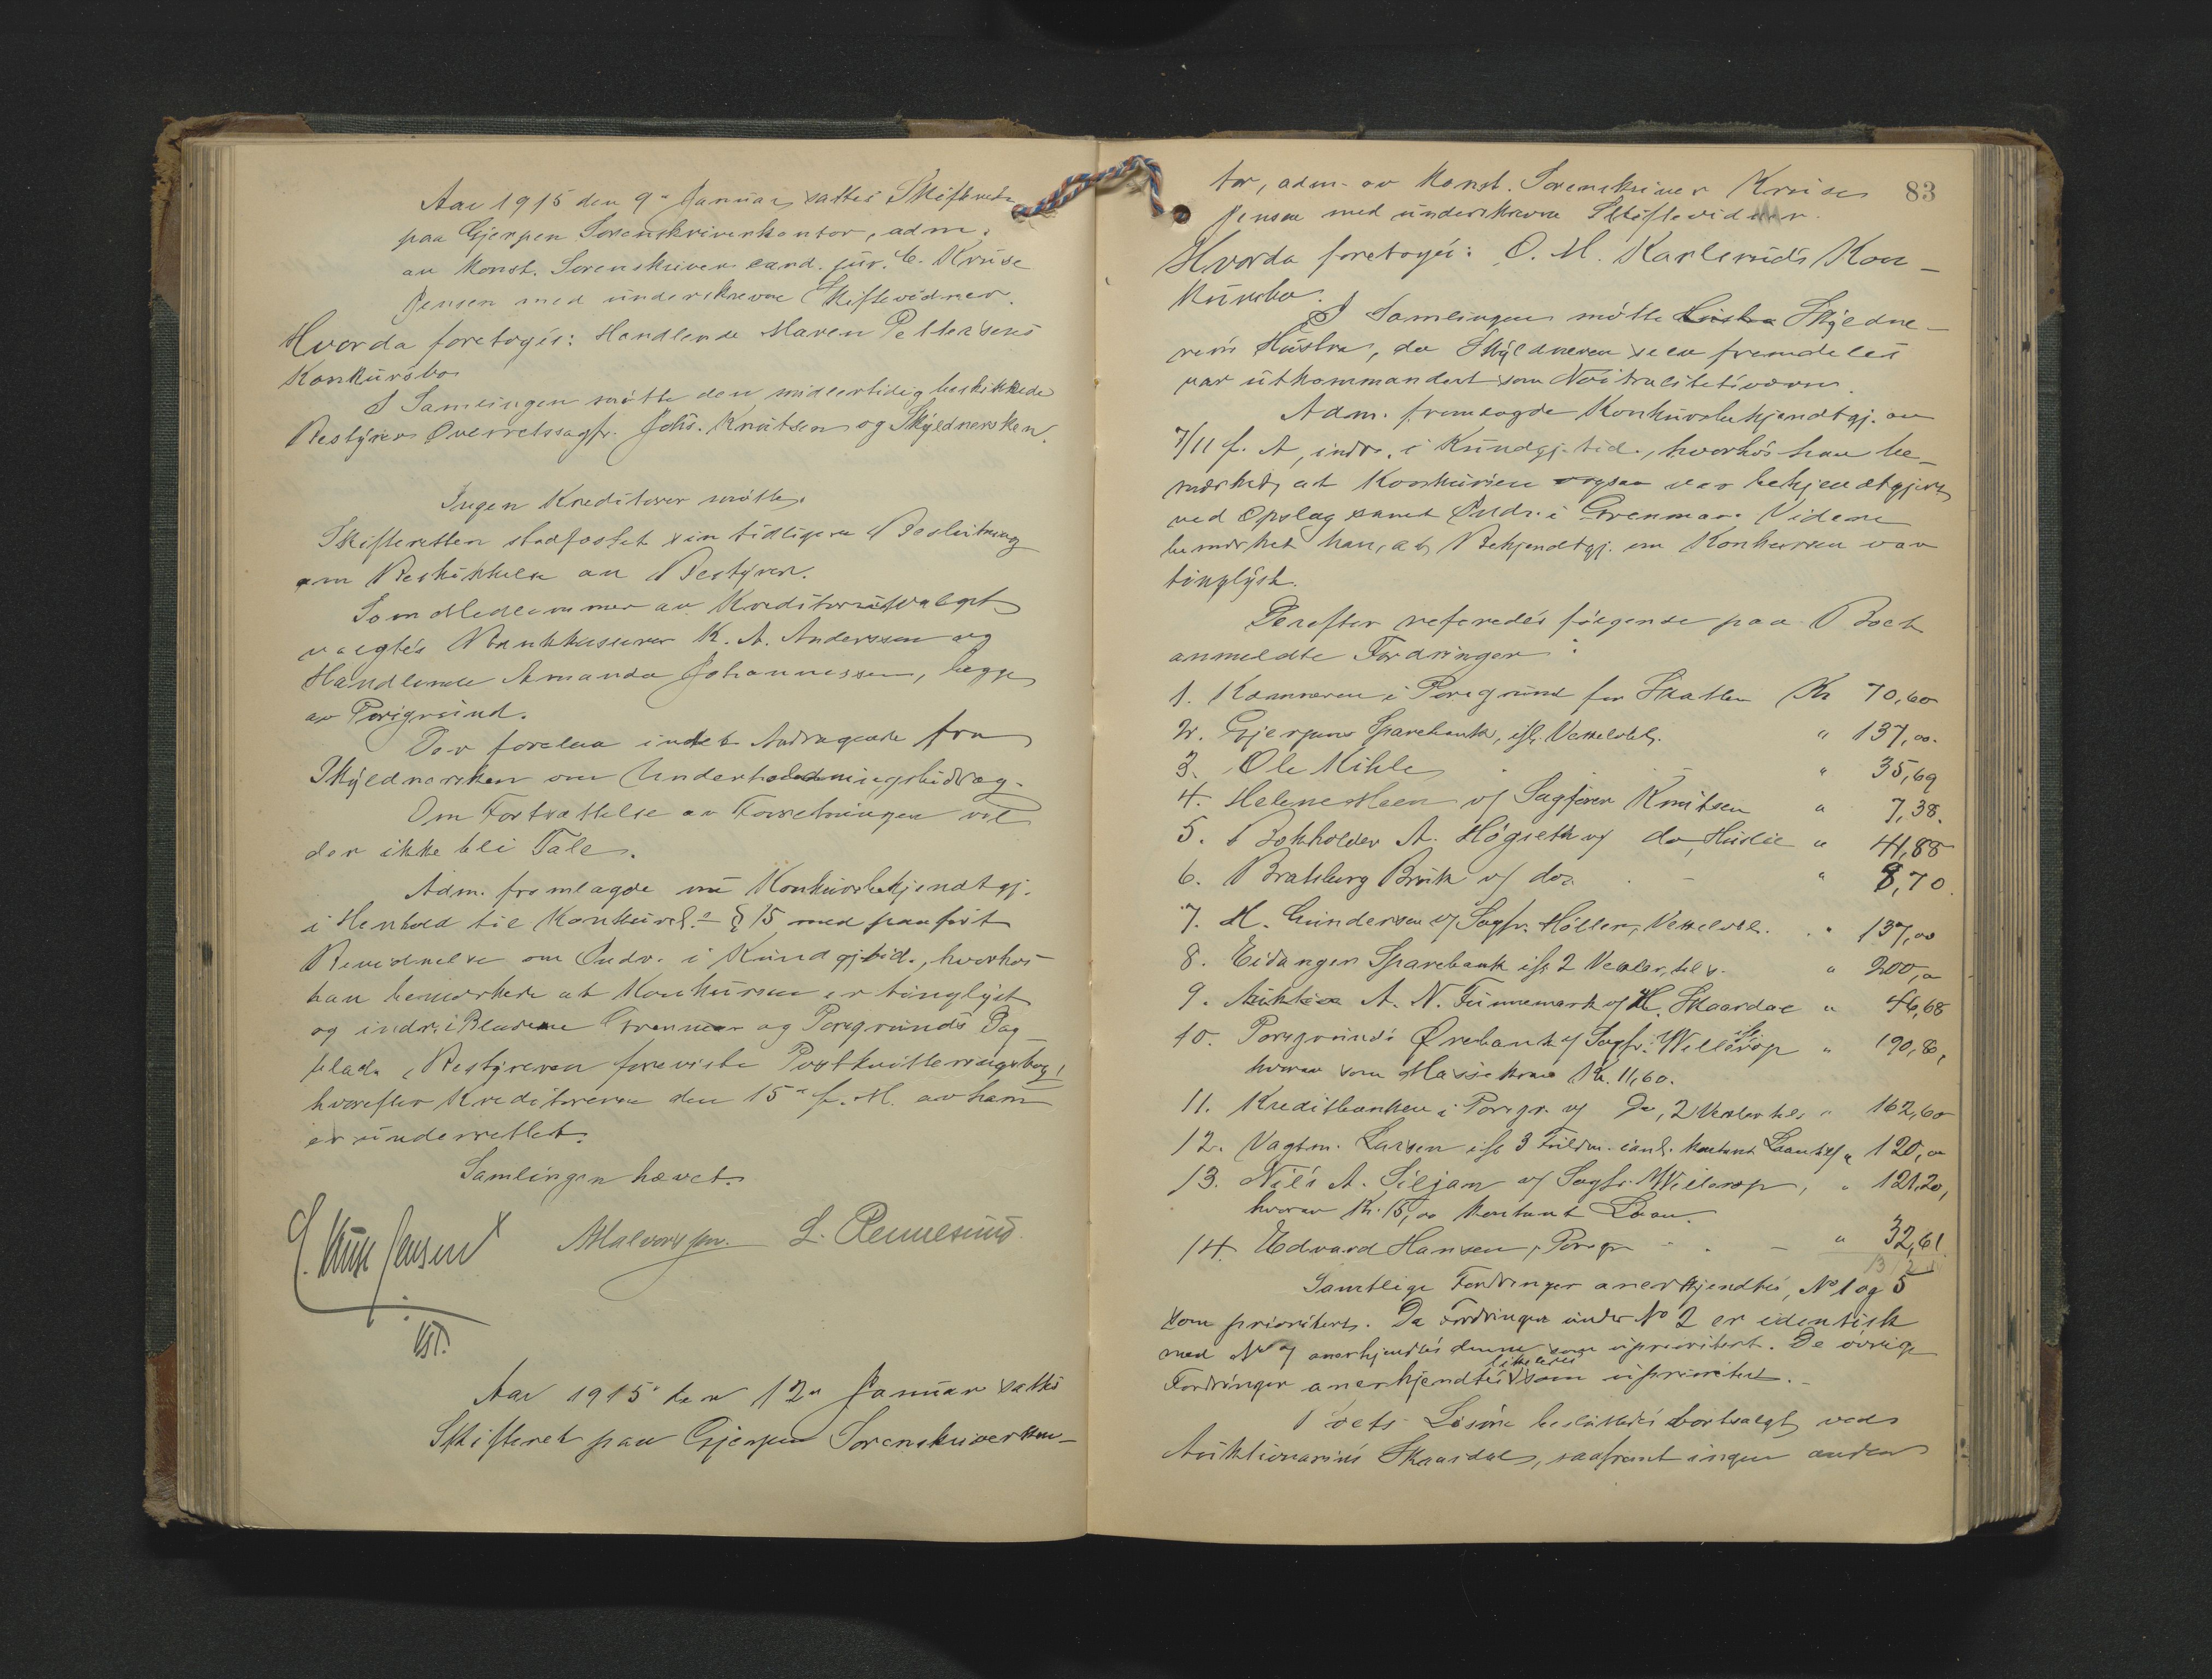 Aar 1915 den 9de Januar sattes Skifteret
paa Gjerpen Sorenskriverkontor, adm.
av Konst. Sorenskriver cand. jur. C. Kruse
Jensen med underskrevne Skiftevidner.
Hvorda foretoges: Handlende Maren Pettersens
Konkursbo
I Samlingen møtte den midlertidig beskikkede
Bestyrer Overretssagfr. Johs. Knutsen og Skyldnersken.
Ingen Kreditorer møtte.
Skifteretten stadfæstet sin tidligere Beslutning
om Beskikkelse av Bestyrer.
Som Medlemmer av Kreditorutvalget
valgtes Bankkasserer K. A. Anderssen og
Handlende Amanda Johannessen, begge
av Porsgrund.
Der forelaa intet Andragende fra
Skyldnersken om Underholdningsbidrag.
Om Fortsættelse av Forretningen vil
der ikke bli Tale.
Adm. fremlagde nu Konkursbekjendtgj.
i Henhold til Konkursl. § 15 med paaført
Bevidnelse om Indr. i Kundgj.tid., hvorhos
han bemerkede at Konkursen er tinglyst
og indr. i Bladene Grenmar og Porsgrunds Dag-
blad. Bestyreren foreviste Postkvitteringsbog,
hvorefter Kreditorerne den 15de f. M. av ham
er underrettet.
Samlingen hævet.
C. Kruse Jensen A Halvorsen. L. Rennesund
kst.
Aar 1915 den 12te Januar sattes
Skifteret paa Gjerpen Sorenskriverkon-
83
tor, adm. av Konst. Sorenskriver Kruse
Jensen med underskrevne Skiftevidner.
Hvorda foretoges: O. M. Karlsruds Kon-
kursbo.
I Samlingen møtte Hustru Skyldne-
rens Hustru, da Skyldneren selv fremdeles
var utkommandert som Nøitralitetsværn.
Adm. fremlagde Konkursbekjendtgj. av
7/11 f. A, indr. i Kundgj. tid., hvorhos han be-
merket, at Konkursen ogsaa var bekjendtgjort
ved Opslag samt Indr. i Grenmar. Videre
bemerket han, at Bekjendtgj. om Konkursen var
tinglyst.
Derefter refereredes følgende paa Boet
anmeldte Fordringer:
1. Kæmneren i Porsgrund for Skatter Kr 70,60
2. Gjerpens Sparebank, ifl. Vexelobl. " 137,00.
3. Ole Kihle " 35,69
4. Helene Steen v/ Sagfører Knutsen " 7,38.
5. Bokholder A. Høgseth v/ do, Husleie " 41,88
6. Bratsberg Bruk v/ do. " 8,70.
7. H. Gundersen v/ Sagfr. Møller, Vexelobl. " 137,00
8. Eidanger Sparebank ifl. 2 Vexler, tils. " 200,00
9. Auktion A. N. Funnemark v/ H. Skaardal " 46,68
10. Porsgrunds Ørebank v/ Sagfr. Willerup " 190,80,
hvorav som Massekrav Kr. 11,60.
11. Kreditbanken i Porsgr. v/ Do, 2 Vexler tils " 162,60
12. Vagtm. Larsen ifl 3 Fuldm. kontant Laan " 120,00
13. Nils A. Siljan v/ Sagfr. Willerup, " 121,20,
hvorav Kr. 15,00 kontant Laan.
14. Edvard Hansen, Porsgr " 32,61
Samtlige Fordringer anerkjendtes, No 1 og 5
som prioritert. Da Fordringen under No 2 er identisk
med No 7 anerkjendtes denne som uprioritert. De øvrige
Fordringer anerkjendtes likeledes som uprioritert.
Boets Løsøre besluttedes bortsolgt ved
Auktionarius Skaardal, saafremt ingen anden